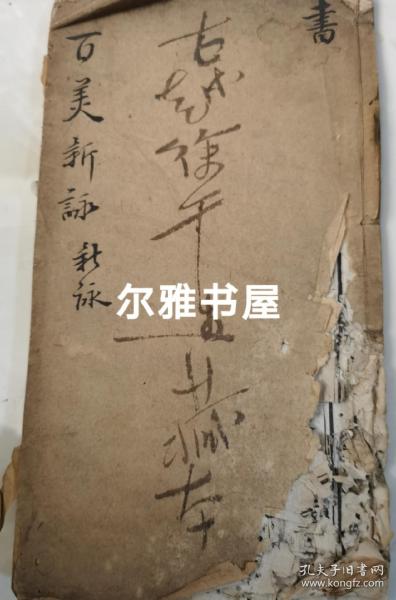 書
古越徐
藏本
百美新詠 新詠
尔雅书屋
孔夫子旧书网
www.kongfz.com